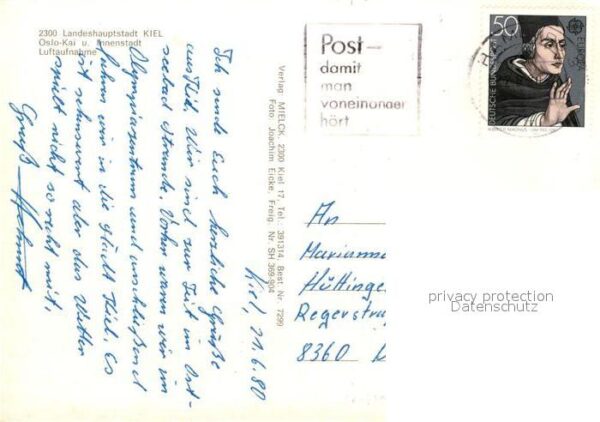 2300 Landeshauptstadt KIEL
Oslo-Kai u. Innenstadt
Luftaufnahme
Kiel, 21.6.80
Ich sende Euch herzliche Grüße
aus Kiel. Wir sind zur Zeit im Ost-
seebad Strande. Vorher waren wir im
Olympiazentrum und anschließend
fuhren wir in die Stadt Kiel. Es
ist sehenswert aber das Wetter
spielt nicht so recht mit.
Gruß Helmut
Verlag MIELCK, 2300 Kiel 17, Tel. 391314, Best. Nr. 7299
Foto: Joachim Eicke, Freig. Nr. SH 369-904
Post-
damit
man
voneinander
hört
50
EUROPA
DEUTSCHE BUNDESPOST
ALBERTUS MAGNUS
An
Marianne
Hüttinger
Regerstraße
8360
privacy protection
Datenschutz